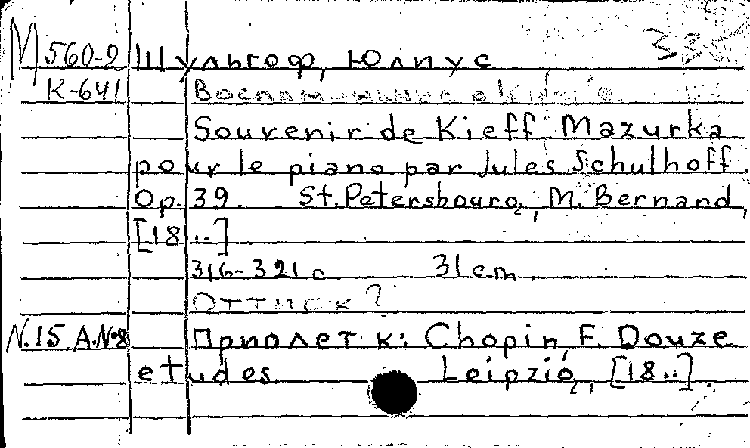 М 560-2 Шульгоф, Юлиус 33
К-641 Воспоминание о Киеве.
Souvenir de Kieff Mazurka
pour le piano par Jules Schulhoff.
Op. 39. St. Petersbourg, M. Bernard,
[18..]
316-321 с. 31 cm.
Оттиск?
N.15 A.N8 Приплет к: Chopin, F. Douze
etudes Leipzig, [18..].